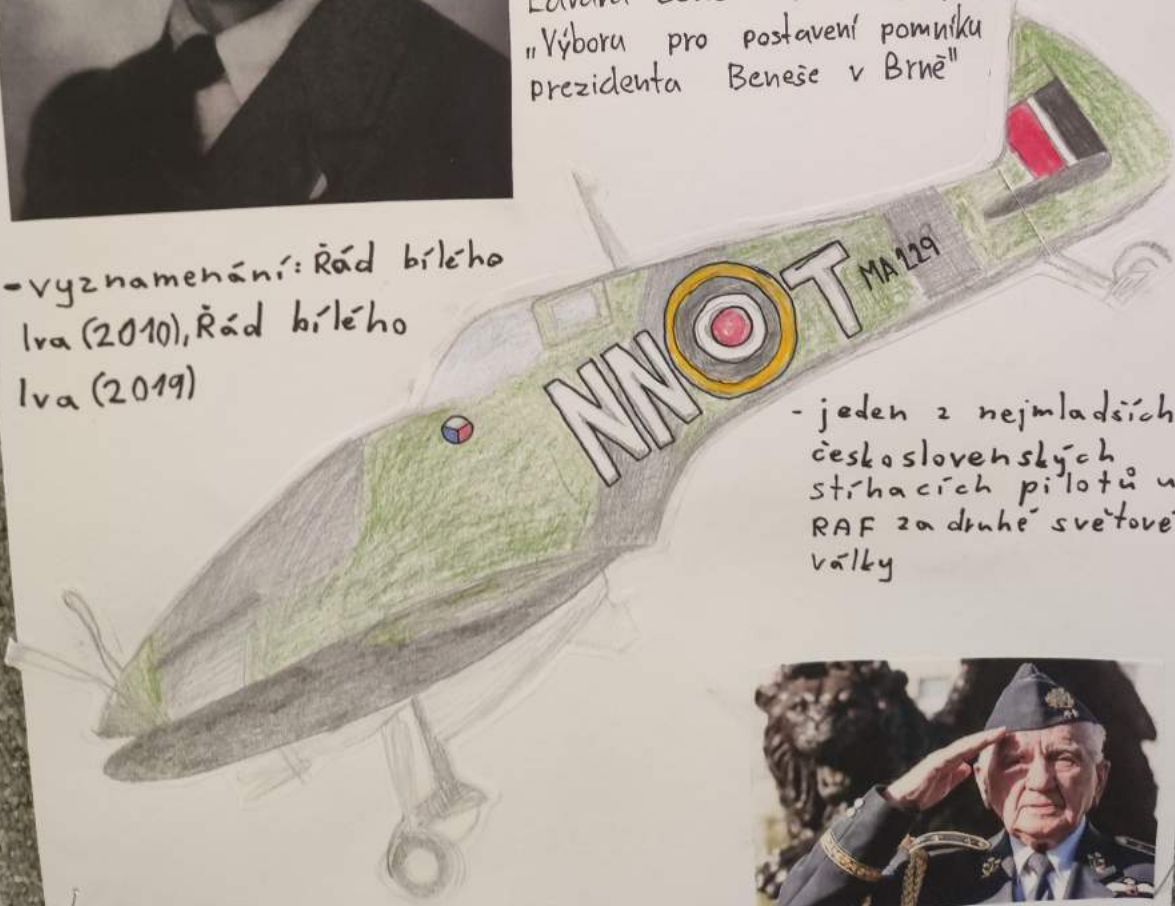 „Výboru pro postavení pomníku
prezidenta Beneše v Brně"
-vyznamenání: Řád bílého
lva (2010), Řád bílého
lva (2019)
NN T MA229
- jeden z nejmladších
československých
stíhacích pilotů u
RAF za druhé světové
války